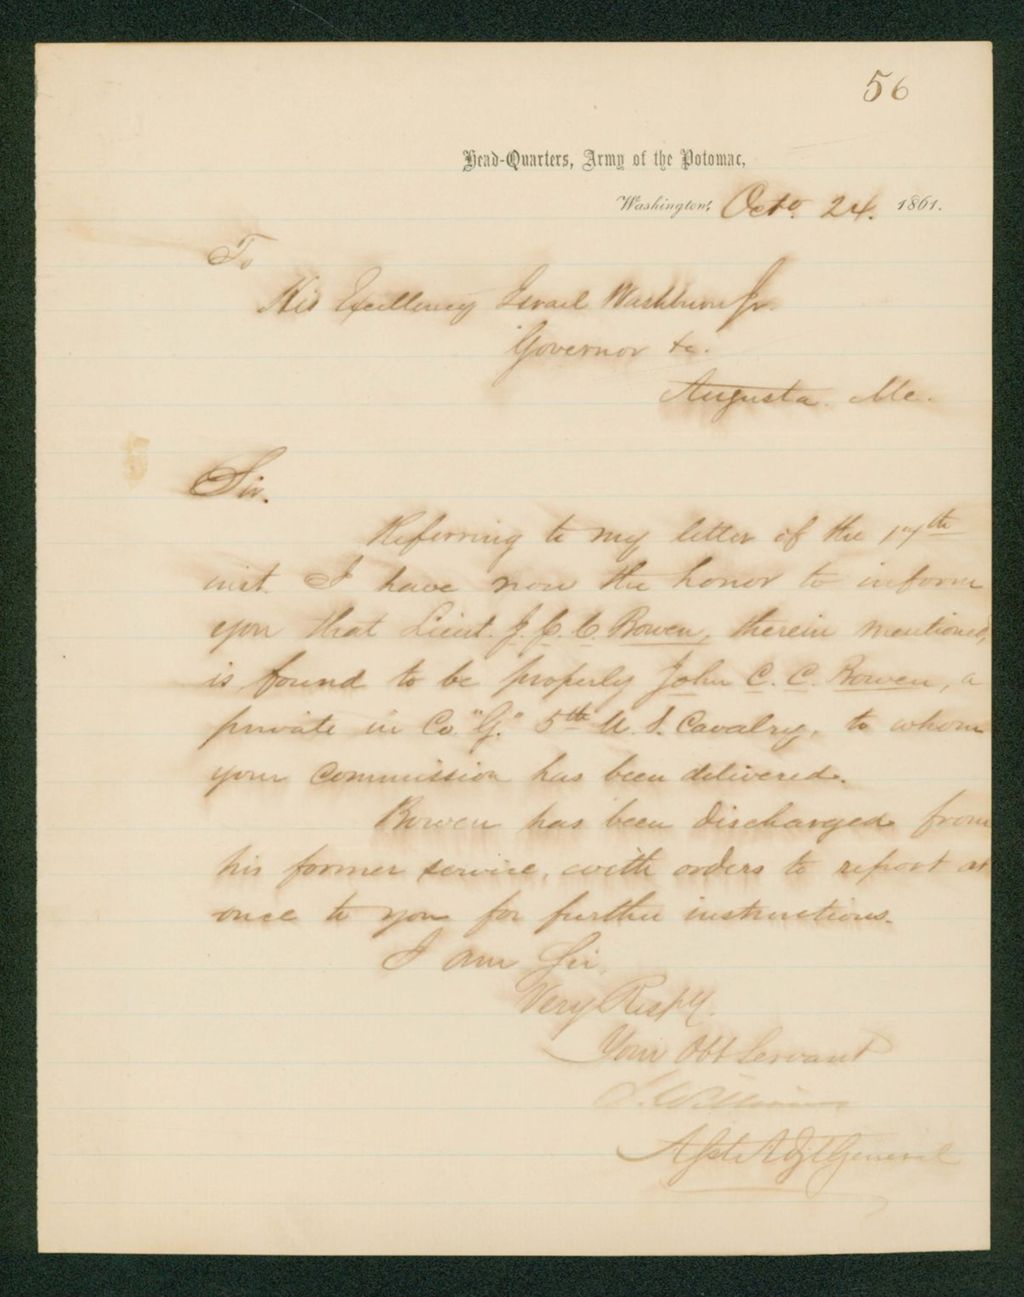 56
Head-Quarters, Army of the Potomac,
Washington, Octo. 24. 1861.
To
His Excellency Israel Washburn Jr.
Governor &c.
Augusta. Me.
Sir.
Referring to my letter of the 17th
inst. I have now the honor to inform
you that Lieut. J. C. C. Bowen, therein mentioned,
is found to be properly John C. C. Bowen, a
private in Co. "G." 5th U. S. Cavalry, to whom
your commission has been delivered.
Bowen has been discharged from
his former service, with orders to report at
once to you for further instructions.
I am Sir,
Very Respy.
Your Obt Servant
S. Williams
Asst. Adjt General